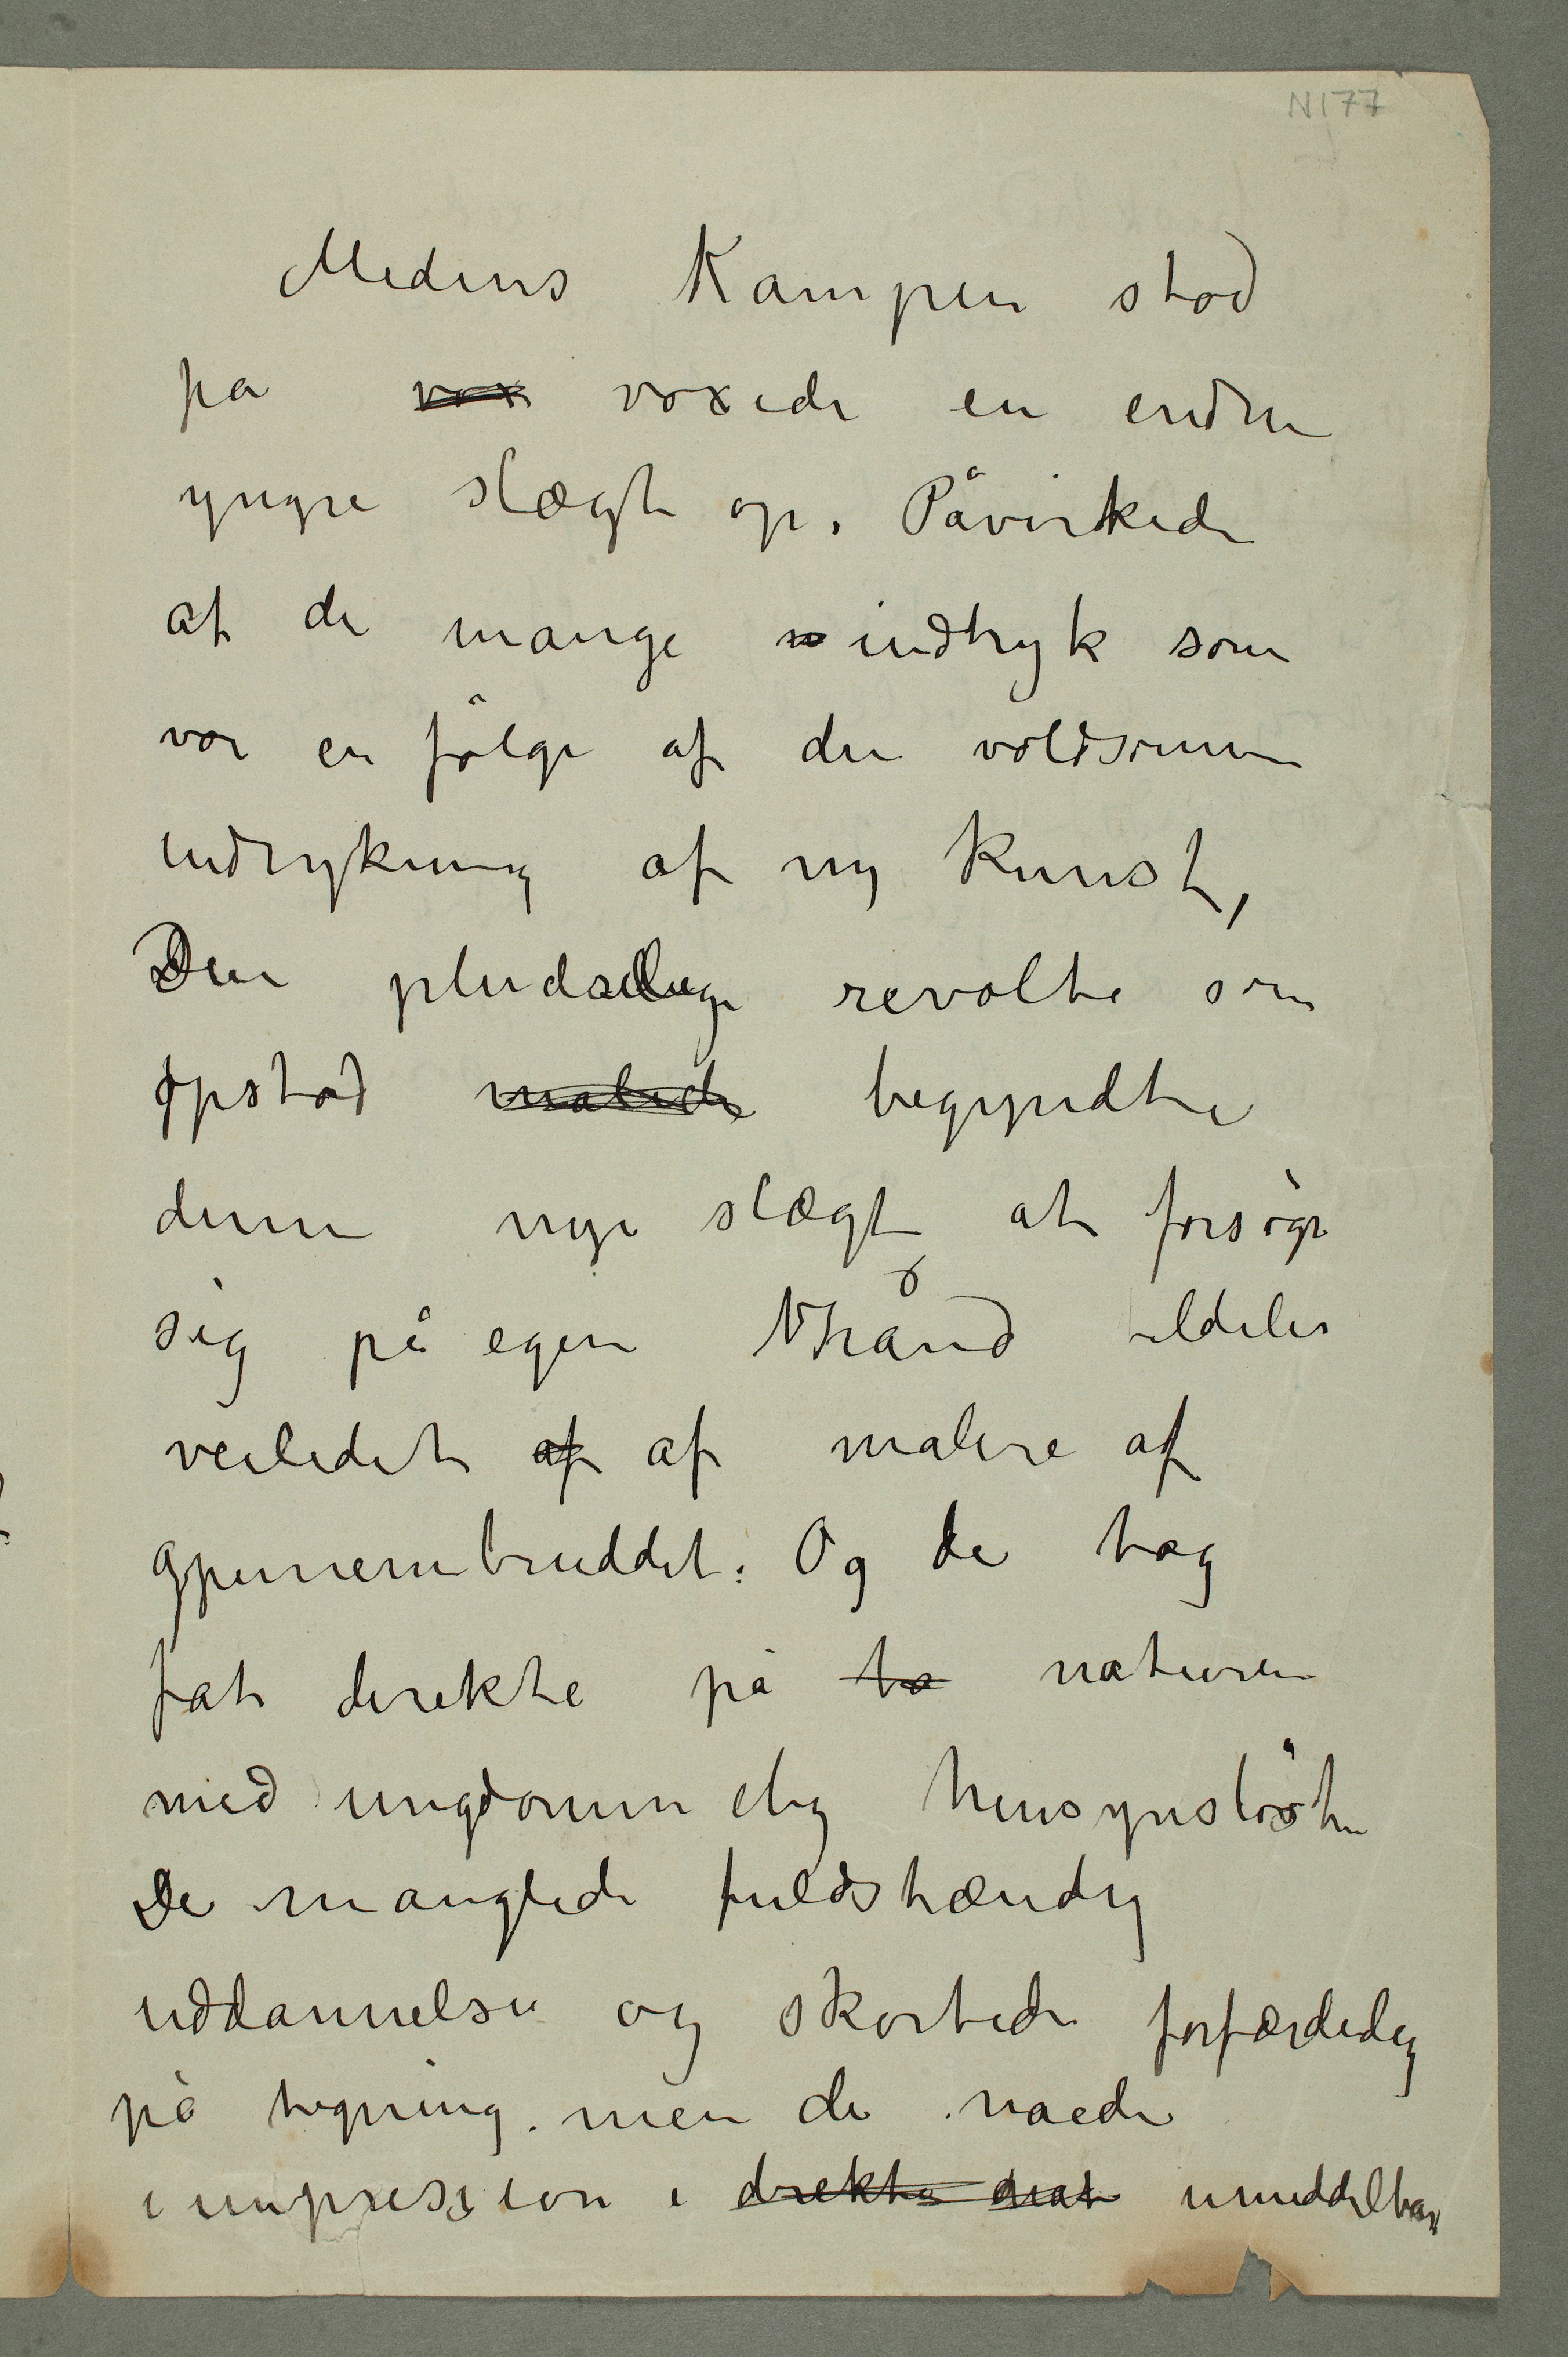 N 177
Medens Kampen stod
på vox voxede en endnu
yngre slægt op. Påvirkede
af de mange indtryk som
var en følge af den voldsomme
indrykning af ny Kunst,
Den pludselige revolte som
opstod malede begyndte
denne nye slægt at forsøge
sig på egen hånd ildeles
veiledet af af malere af
gjennembruddet. Og de tog
fat direkte på ta naturen
med ungdommelig hensynsløshe
De manglede fuldstændig
uddannelse og skortede forfærdelig
på tegning. men de naede
i impression i direkte umiddelbar